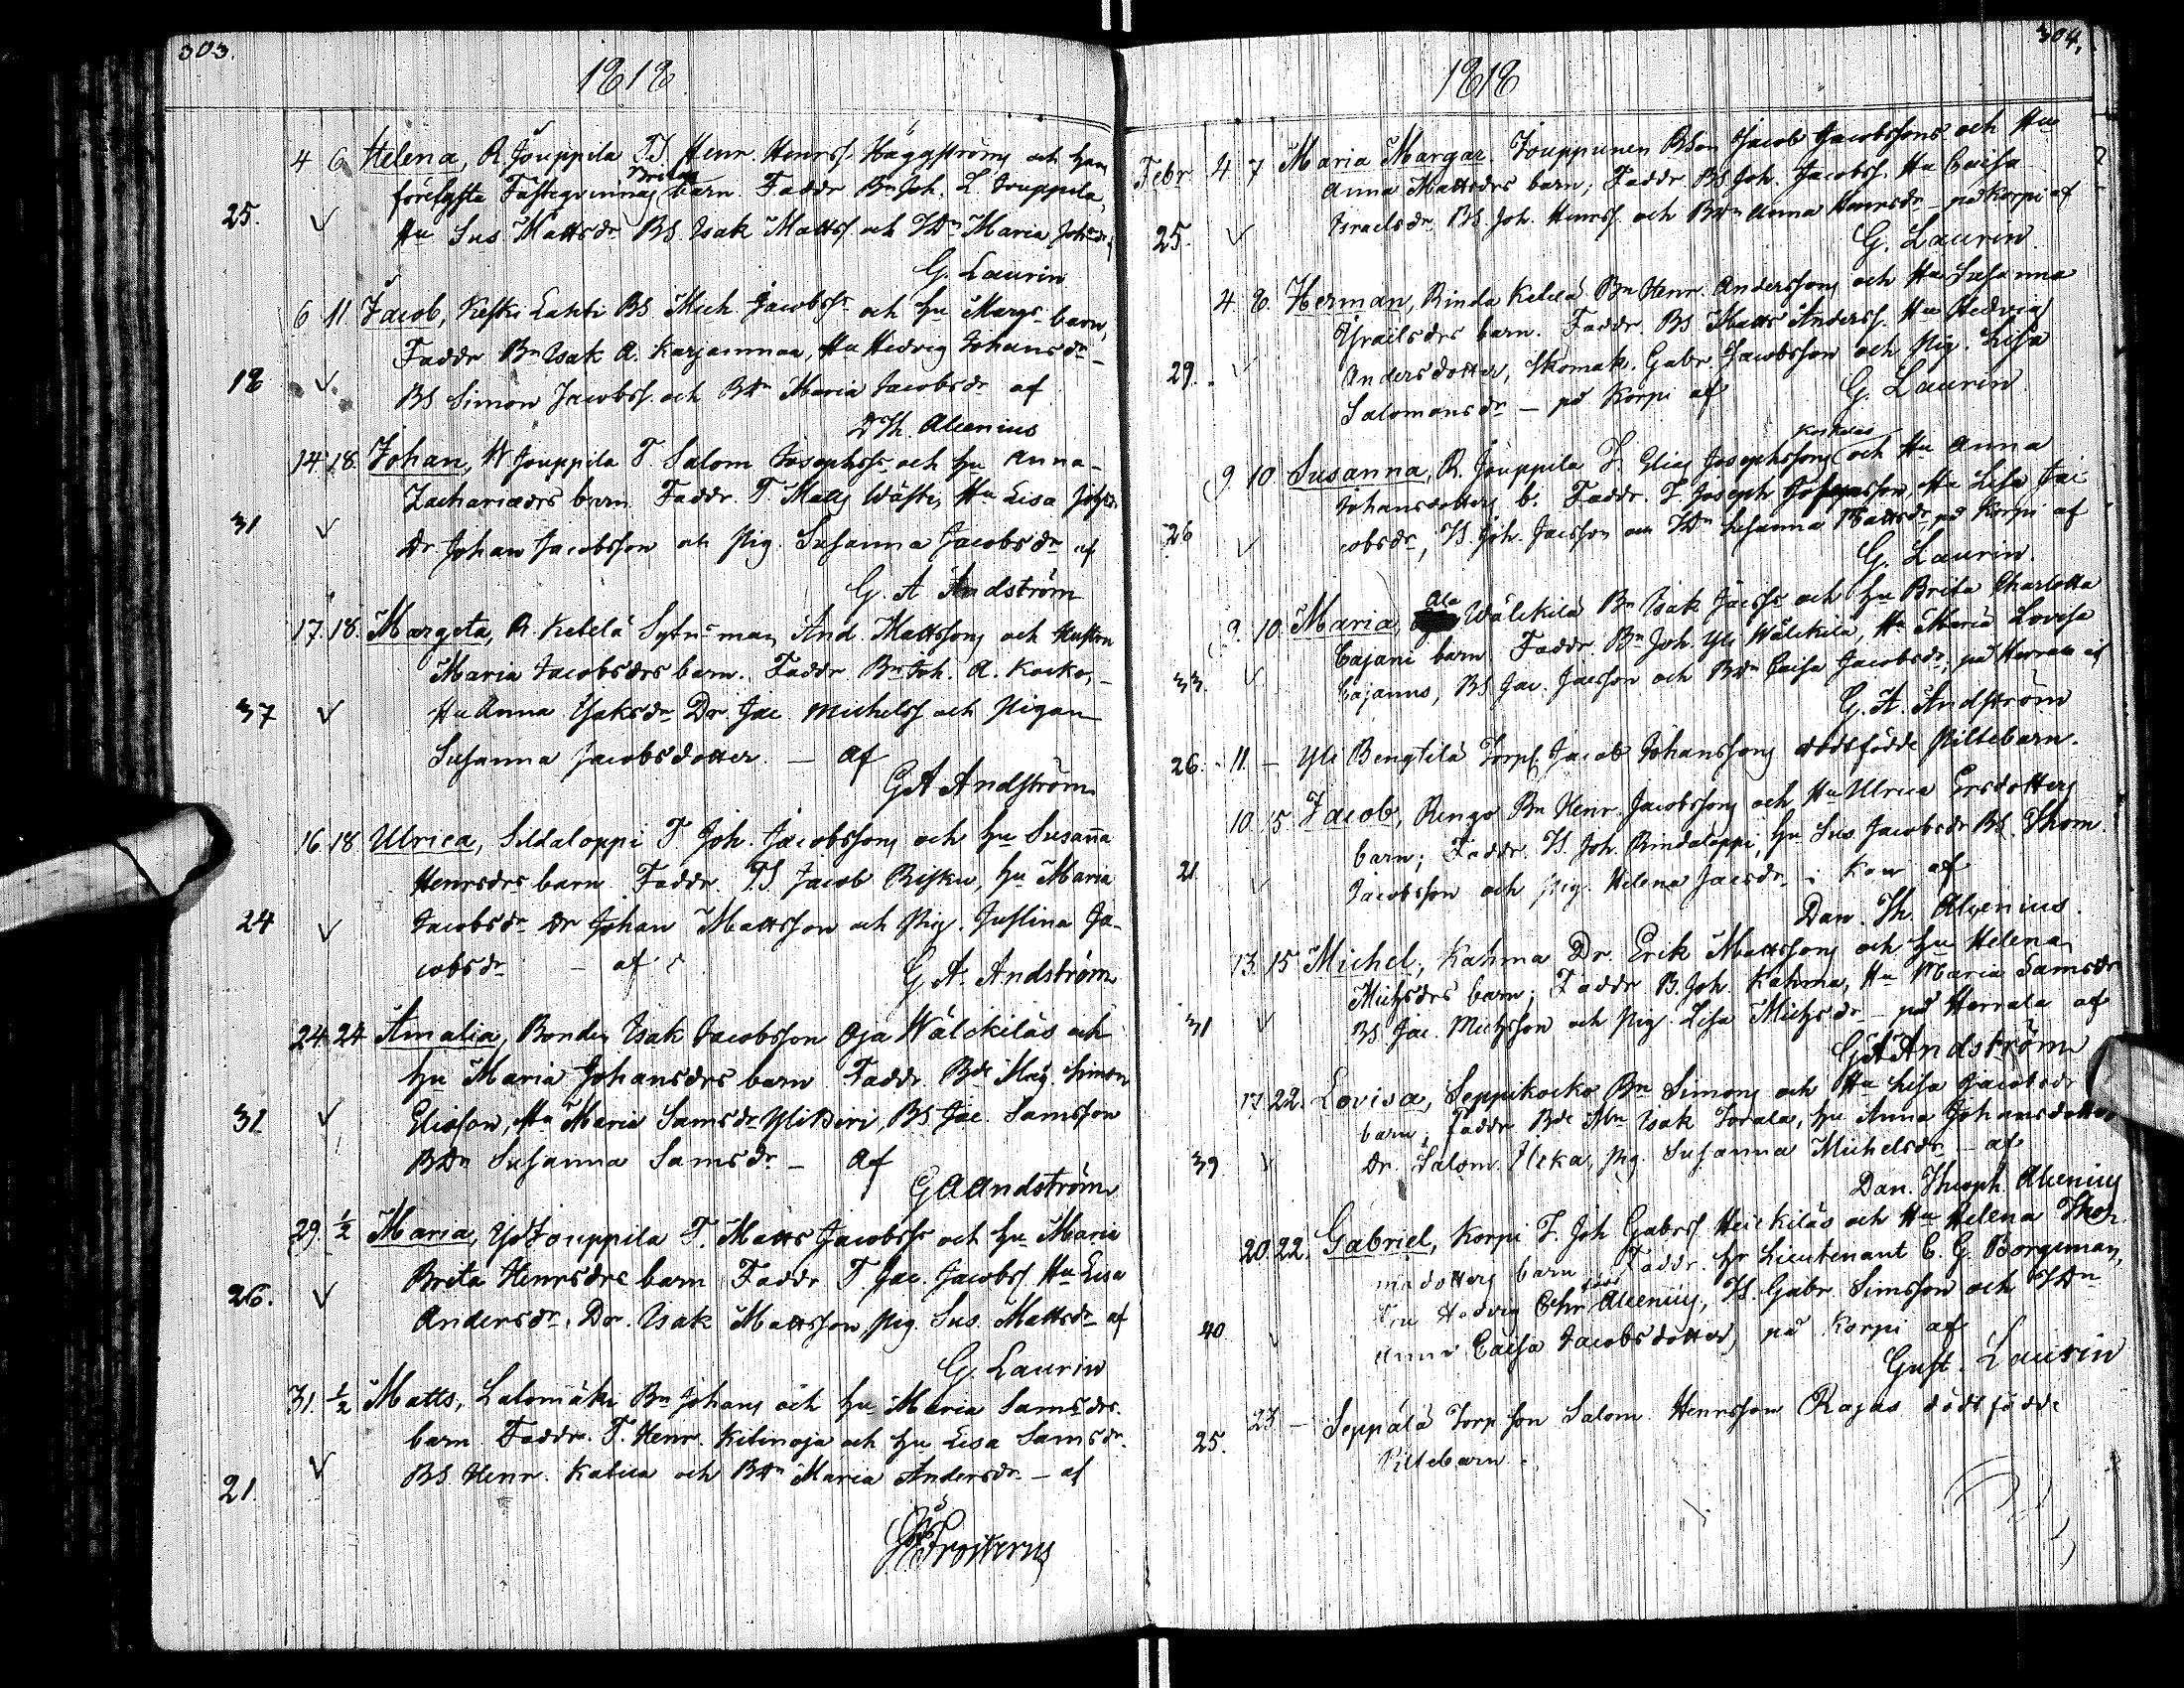 303.
1818.
4 6 Helena, R. Jouppila TS. Henr. Henrss. Häggströms och hans
förelyfta Fästeqvinnas Britas barn. Faddr. Bn Joh. L. Jouppila,
25. Hu Sus. Mattsdr BS. Isak Mattss. och TDn Maria Johsdr
G. Laurin
6 11 Jacob, Keski Lahti BS Mich. Jacobss. och hu Margs barn,
Faddr Bn Isak A. Karjanmaa, Hu Hedvig Johansdr
18 BS Simon Jacobss. och BDn Maria Jacobsdr af
D Th. Alcenius
14 18. Johan, W Jouppila T. Salom Josephss. och hu Anna
Zachariædrs barn. Faddr. T. Matts Wästi, Hu Lisa Johsdr
31 Dr. Johan Jacobsson och Pig. Susanna Jacobsdr af
G. A Andström
17. 18. Margeta, R. Ketelä Sytnsman And. Mattssons och Hustrun
Maria Jacobsdrs barn. Faddr. Bn Joh. A. Kocko,
37 Hu Anna Isaksdr Dr. Jac. Michelss och Pigan
Susanna Jacobsdotter. — af
G A Andström
16 18 Ulrica, Sildaloppi T. Joh. Jacobssons och hu Susanna
Henrsdrs barn. Faddr. TS. Jacob Risku, hu Maria
24 Jacobsdr Dr Johan Mattsson och Pig. Justina Ja-
cobsdr — af
G. A. Andström
24 24 Amalia, Bonden Isak Jacobsson Oja Wälckiläs och
hu Maria Johansdrs barn. Faddr. Bde Mag. Simon
31 Eliasson, Hu Maria Samsdr Yli, BS Jac. Samsson
BDn Susanna Samsdr — af
G A Andström
29. ½ Maria, Yd Jouppila T. Matts Jacobss. och hu Maria
Brita Henrsdrs barn. Faddr. T. Jac. Jacobss Hu Lisa
26. Andersdr, Dr. Isak Mattsson, Pig. Sus. Mattsdr af
G. Laurin
31. ½ Matts, Salomäki Bn Johans och hu Maria Samsdrs
barn. Faddr. T. Henr. Kitinoja och hu Lisa Samsdr
21. BS Henr. och BDn Maria Andersdr — af
Frosterus
304.
1818
Febr. 4. 7 Maria Margar. Jouppunen BSon Jacob Jacobssons och Hu
Anna Mattsdrs barn; Faddr. BS Joh. Jacobss. Hu Caisa
25. Israelsdr, BS Joh. Henrss. och BDn Anna Henrsdr — på Korpi af
G. Laurin.
4. 8. Herman, Rinda Ketelä Bn Henr. Anderssons och Hu Susanna
Israelsdrs barn. Faddr. BS Matts Anderss. Hu Hedvig
29. Andersdotter, Skomak. Gabr. Jacobsson och Pig. Lisa
Salomonsdr — på Korpi af G. Laurin.
9. 10. Susanna, R. Jouppila T. Elias Josephssons Koskelas och Hu Anna
Johansdotters b. Faddr. T. Joseph, Hu Lisa Ja-
26 cobsdr, TS. Joh. Jacsson och TDn Susanna Mattsdr på Korpi af
G. Laurin.
9. 10. Maria, Ala Wälckilä Bn Isak Jacss och hu Brita Charlotta
Cajani barn. Faddr. Bn Joh. Yli Wälckilä, Hu Maria Lovisa
33. Cajanus, BS Jac. Jacsson och BDn Caisa Jacobsdr, på Herrala af
G. A. Andström
26. 11. — Yli Bengtilä Torp. Jacob Johanssons dödfödde Piltebarn.
10 15 Jacob, Rengo Bn Henr. Jacobssons och Hu Ulrica Ersdotters
barn; Faddr. TS. Joh. Rindaloppi, hu Sus. Jacobsdr BS. Thom.
21 Jacobsson och Pig. Helena Jacsdr — i Kaur af
Dan. Th. Alcenius.
13. 15 Michel, Kahma Dr. Erik Mattssons och hu Helena
Michsdrs barn; Faddr. B. Joh. Kahma, Hu Maria Samsdr
31 BS Jac. Michsson och Pig. Lisa Michsdr — på Herrala af
G A Andström
17. 22. Lovisa, Seppikocko Bn Simons och Hu Lisa Jacobsdr
barn; Faddr Bde Mn Isak Torala, hu Anna Johansdotter
39. Dr. Salom., Pig. Susanna Michelsdr — af
Dan. Theoph. Alcenius
20. 22. Gabriel, Korpi T. Joh Gabrss. Heickiläs och Hu Helena Tho-
madotters barn. Faddr. Hr Lieutenant C. G. Borgman,
Fru Hedvig Alcenius, TS. Gabr. Simsson och TDn
40 Anna Caisa Jacobsdotter på Korpi af
Gust. Laurin
23 — Seppälä Torp son Salom. Henrsson Rajas dödfödde
25. Piltebarn.